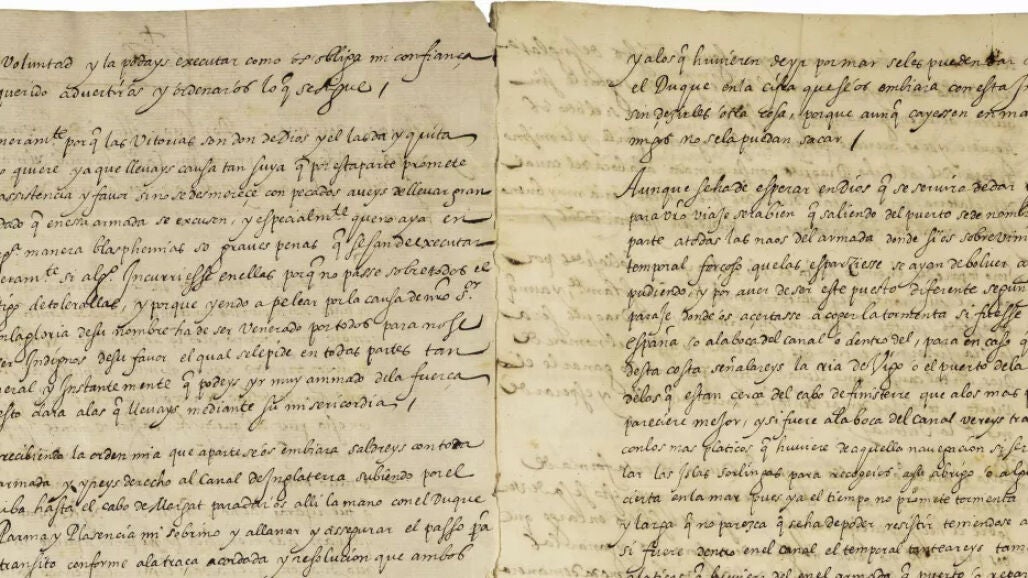 Voluntad y la podays executar como os obliga mi confiança
querido advertiros y ordenaros lo q̃ se sigue /
neramᵗᵉ porq̃ las Vitorias son don de Dios y el las da y quita
quiere ya que llevays causa tan suya q̃ por esta parte promete
assistencia y favor si no se desmerece con pecados aveys de llevar gran
dado q̃ en esa armada se escusen, y especialmᵗᵉ que no aya en
manera blasphemias so graves penas q̃ se han de executar
si alg.º incurriesse en ellas porq̃ no passe sobre todos el
tigo de tolerallas, y porque yendo a pelear por la causa de nr̃o S.ʳ
la gloria de su nombre ha de ser venerado por todos para no se
er Indignos de su favor el qual se le pide en todas partes tan
neral y Instantemente q̃ podeys yr muy animado de la fuerça
esto dara a las q̃ llevays mediante su misericordia /
recibiendo la orden mia que aparte se os embiara saldreys con toda
armada, y yreys derecho al Canal de Inglaterra subiendo por el
iba hasta el cabo de Margat para daros alli la mano con el Duque
Parma y Plasencia mi sobrino y allanar y assegurar el passo p̃a
transito conforme a la traça acordada y resolucion que ambos
y a los q̃ huvieren de yr por mar se les pueden dar
el Duque en la cifra que se os embiara con esta
sin dezirles otra cosa, porque aunq̃ cayessen en ma
migas no se la puedan sacar. /
Aunque se ha de esperar en Dios q̃ se servira de dar
para vr̃o viaje sera bien q̃ saliendo del puerto se de nomb
parte a todas las naos del armada donde si os sobrevini
temporal forçoso que las esparziesse se ayan de bolver a
pudiendo, y por aver de ser este puesto diferente segun
paraje donde os acertasse a coger la tormenta si fuesse
españa, o a la boca del canal o dentro del, para en caso q
desta costa, señalareys la ria de Vigo o el puerto de la
de los q̃ estan çerca del cabo de finisterre que a los mas
pareciere mejor, y si fuere a la boca del Canal vereys tra
con los mas platicos q̃ huviere de aquella navegacion si ser
lar las Islas Sorlingas para recogeros a su abrigo o algo
cierta en la mar pues ya el tiempo no promete tormenta
y larga q̃ no parezca q̃ se ha de poder resistir teniendose a
si fuere dentro en el canal el temporal tanteareys tam